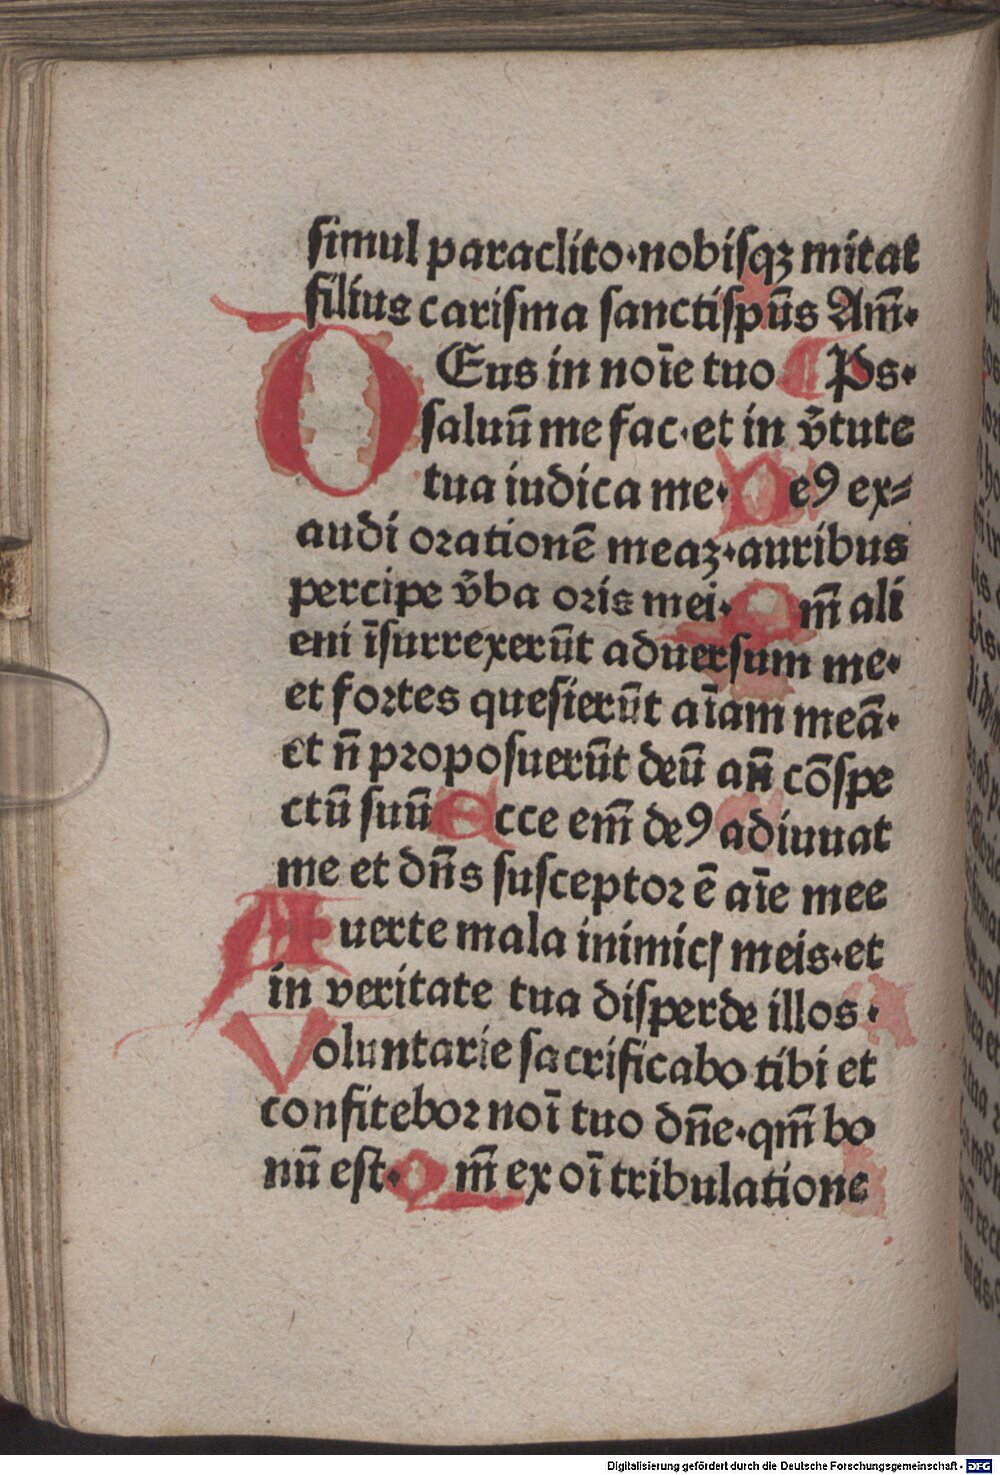 simul paraclito·nobisqꝫ mitat
filius carisma sanctispūs Am̄·
DEus in noīe tuo ¶ Ps·
saluū me fac·et in v̄tute
tua iudica me· De9 ex⸗
audi orationē meaꝫ·auribus
percipe v̄ba oris mei· Qm̄ ali
eni īsurrexerūt aduersum me·
et fortes quesierūt aīam meā·
et n̄ proposuerūt deū an̄ cōspe
ctū suū Ecce em̄ de9 adiuuat
me et dn̄s susceptor ē aīe mee
Auerte mala inimicꝭ meis·et
in veritate tua disperde illos·
Voluntarie sacrificabo tibi et
confitebor noī tuo dn̄e·qm̄ bo
nū est· Qm̄ ex oī tribulatione
Digitalisierung gefördert durch die Deutsche Forschungsgemeinschaft - DFG